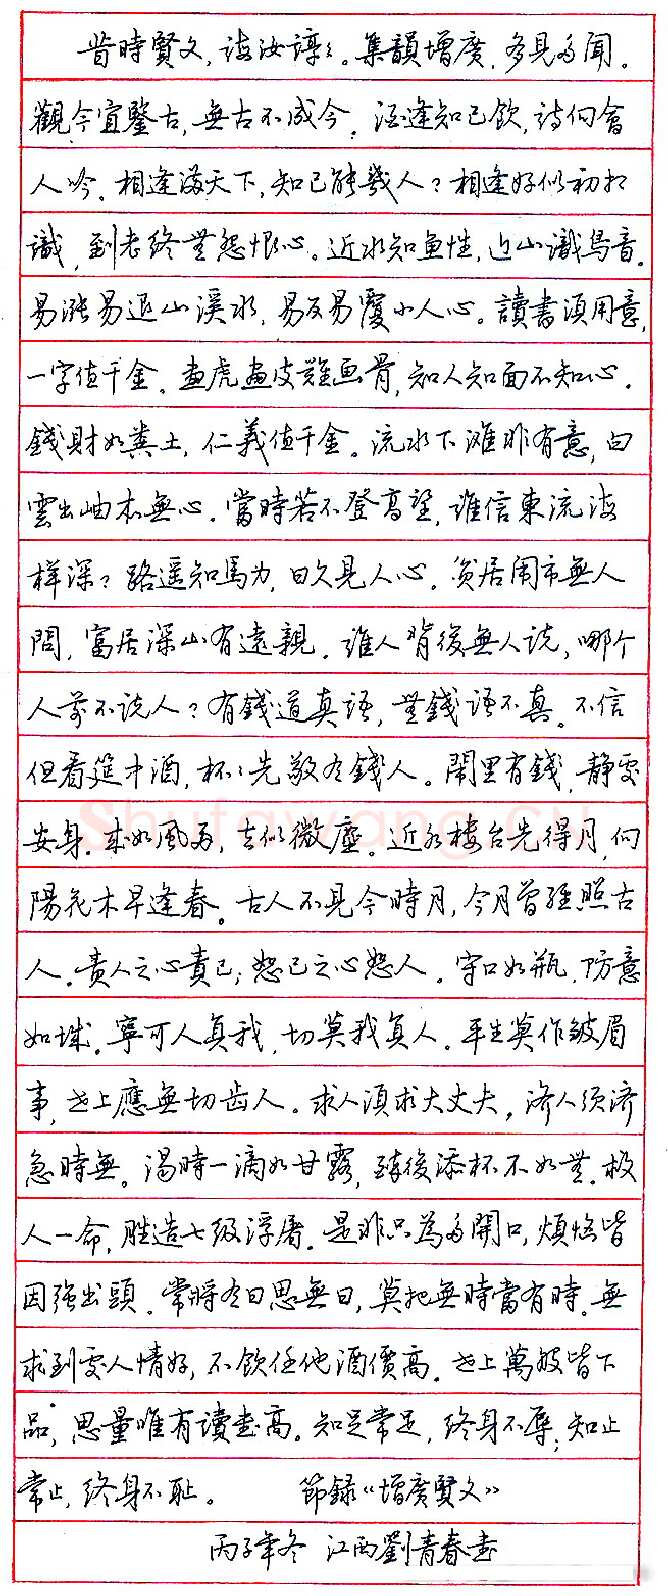 昔時賢文，誨汝諄々。集韻增廣，多見多聞。
觀今宜鑒古，無古不成今。酒逢知己飲，詩向會
人吟。相逢滿天下，知己能幾人？相逢好似初相
識，到老終無怨恨心。近水知魚性，近山識鳥音。
易漲易退山溪水，易反易覆小人心。讀書須用意，
一字值千金。畫虎畫皮難畫骨，知人知面不知心。
錢財如糞土，仁義值千金。流水下灘非有意，白
雲出岫本無心。當時若不登高望，誰信東流海
樣深？路遥知馬力，日久見人心。貧居闹市無人
問，富居深山有遠親。誰人背後無人说，哪个
人前不说人？有錢道真語，無錢语不真。不信
但看筵中酒，杯々先敬有錢人。鬧里有錢，静處
安身。來如風雨，去似微塵。近水樓台先得月，向
陽花木早逢春。古人不見今時月，今月曾經照古
人。責人之心責己；恕己之心恕人。守口如瓶，防意
如城。寧可人負我，切莫我負人。平生莫作皺眉
事，世上應無切齿人。求人須求大丈夫，济人须济
急時無。渴時一滴如甘露，醉後添杯不如無。救
人一命，胜造七级浮屠。是非只為多開口，煩惱皆
因强出頭。常將有日思無日，莫把無時當有時。無
求到處人情好，不飲任他酒價高。世上萬般皆下
品，思量唯有讀書高。知足常足，終身不辱；知止
常止，終身不耻。 節録《增廣賢文》
丙子年冬 江西劉青春書